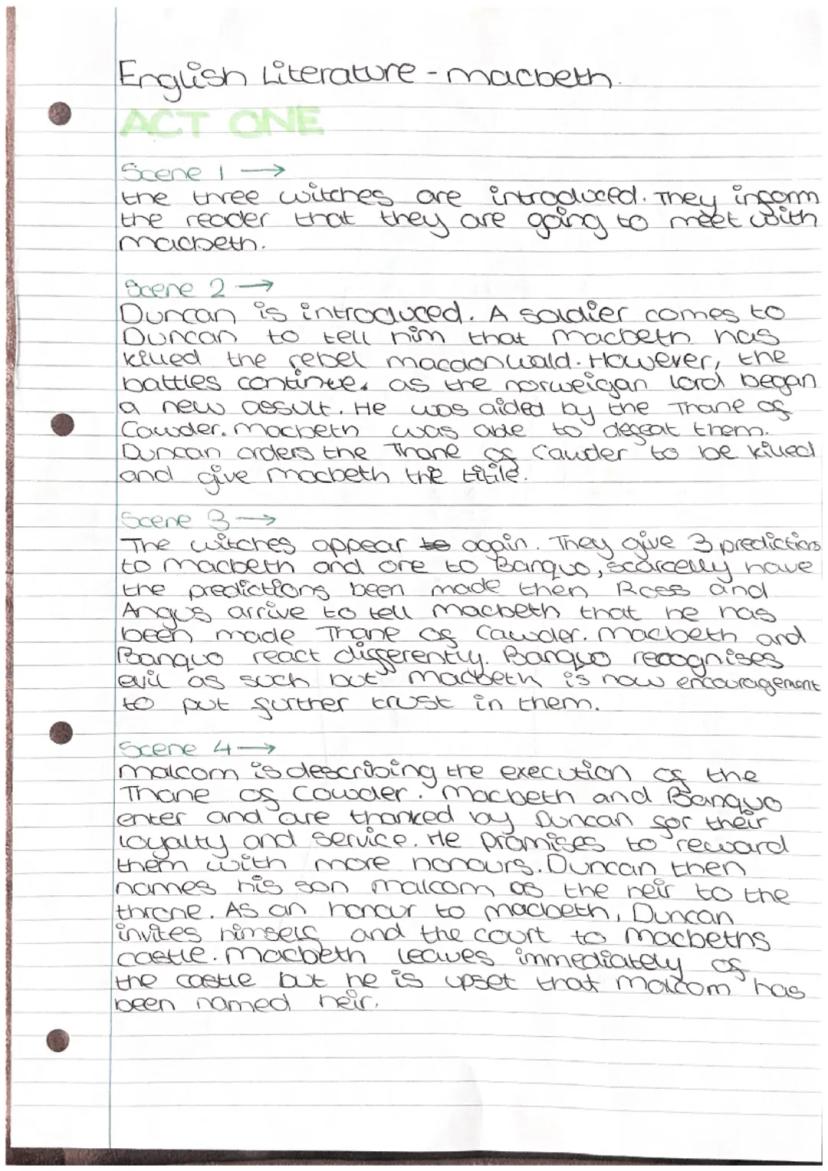 English Literature - macbeth.
ACT ONE
Scene 1 →
the three witches are introduced. They inform
the reader that they are going to meet with
macbeth.
Scene 2 →
Duncan is introduced. A soldier comes to
Duncan to tell him that macbeth has
killed the rebel macdonwald. However, the
battles continue, as the norweigan lord began
a new assult. He was aided by the Thane of
Cawder. macbeth was able to defeat them.
Duncan orders the Thane of Cawder to be killed
and give macbeth the titile.
Scene 3 →
The witches appear to again. They give 3 predictions
to macbeth and one to Banquo, scarcelly have
the predictions been made then Ross and
Angus arrive to tell macbeth that he has
been made Thane of Cawder. macbeth and
Banquo react differently. Banquo recognises
evil as such but macbeth is now encouragement
to put further trust in them.
Scene 4 →
malcom is describing the execution of the
Thane of Cowder. Macbeth and Banquo
enter and are thanked by Duncan for their
loyalty and service. He promises to reward
them with more honours. Duncan then
names his son malcom as the heir to the
throne. As an honour to macbeth, Duncan
invites himself and the court to macbeths
castle. macbeth leaves immediately of
the castle but he is upset that malcom has
been named heir.